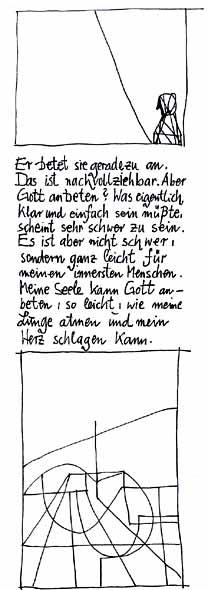 Er betet sie geradezu an.
Das ist nachvollziehbar. Aber
Gott anbeten? Was eigentlich
klar und einfach sein müßte,
scheint sehr schwer zu sein.
Es ist aber nicht schwer,
sondern ganz leicht für
meinen innersten Menschen.
Meine Seele kann Gott an-
beten, so leicht, wie meine
Lunge atmen und mein
Herz schlagen kann.